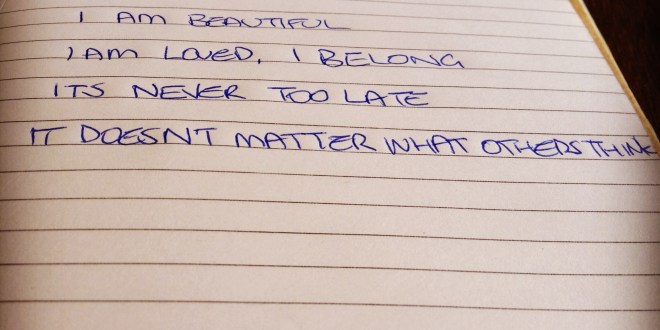 I AM BEAUTIFUL
I AM LOVED, I BELONG
ITS NEVER TOO LATE
IT DOESN'T MATTER WHAT OTHERS THINK